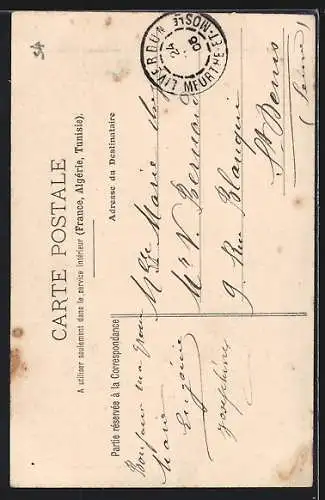 54
CARTE POSTALE
A utiliser seulement dans le service intérieur (France, Algérie, Tunisie).
Partie réservée à la Correspondance
Adresse du Destinataire
LIVERDUN
24
08
MEURTHE-ET-MOSLE
Bonjour ma
Marie
Eugénie
Joséphine
Mlle Marie
Mr V. Bernard
9 Rue Blanqui
St Denis
(Seine)